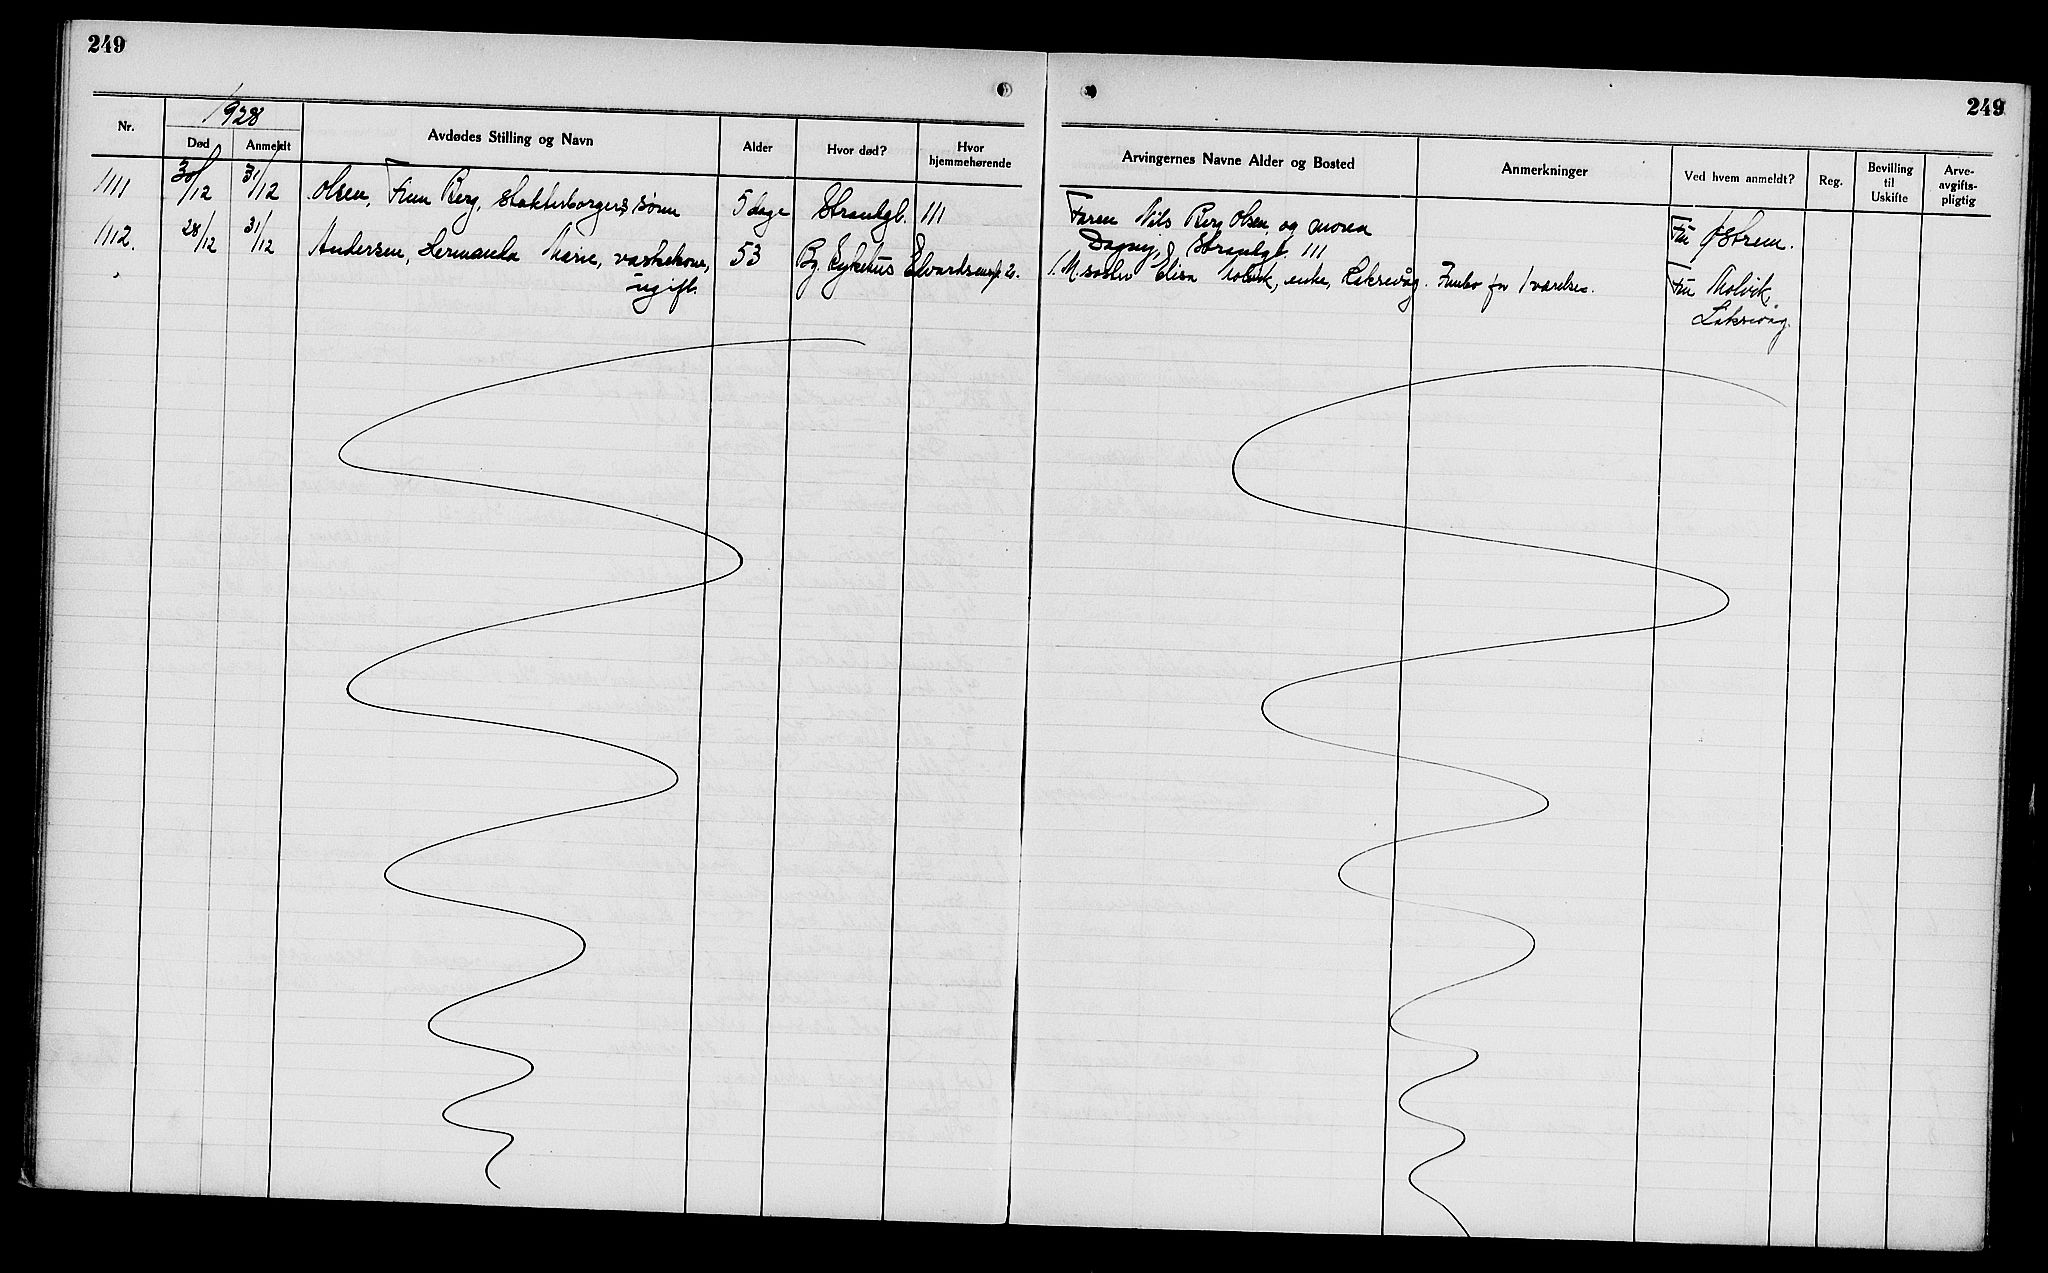 249
249
1928
Nr.
Død
Anmeldt
Avdødes Stilling og Navn
Alder
Hvor død?
Hvor
hjemmehørende
Arvingernes Navne Alder og Bosted
Anmerkninger
Ved hvem anmeldt?
Reg.
Bevilling
til
Uskifte
Arve-
avgifts-
pligtig
1111 30/12 31/12 Olsen, Finn Berg, slakterborgers, sønn 5 dage Strandgt. 111
Faren Nils Berg Olsen, og moren
Dagny, Strandgt. 111
Fru Østrem.
1112. 28/12 31/12 Andersen, Hermanda Marie, vaskekone, 53 By. Sykehus
ugift.
1. M. søster Elisa Molvik, enke, Laksevåg. Innbo for 1 værelse.
Fru Molvik,
Laksevåg.